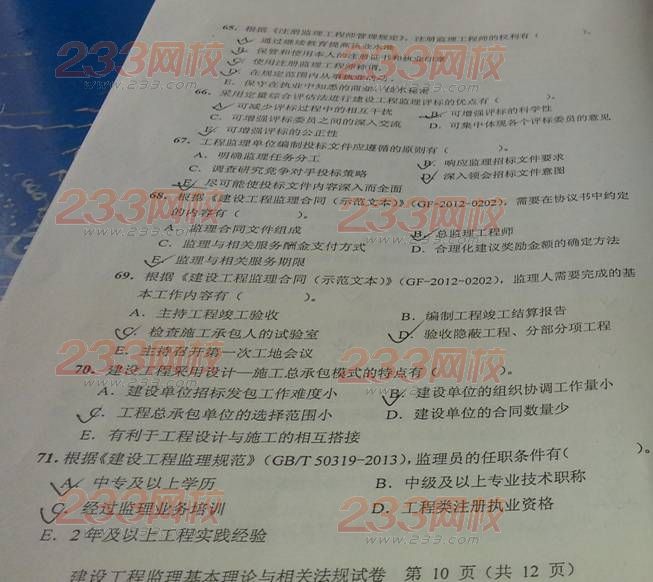 65. 根据《注册监理工程师管理规定》，注册监理工程师的权利有（　　）。
A. 通过继续教育提高执业水准
B. 保管和使用本人的注册证书和执业印章
C. 使用注册监理工程师称谓
D. 在规定范围内从事执业活动
E. 保守在执业中知悉的商业、技术秘密
66. 采用定量综合评估法进行建设工程监理评标的优点有（　　）。
A. 可减少评标过程中的相互干扰　B. 可增强评标的科学性
C. 可增强评标委员之间的深入交流　D. 可集中体现各个评标委员的意见
E. 可增强评标的公正性
67. 工程监理单位编制投标文件应遵循的原则有（　　）。
A. 明确监理任务分工　B. 响应监理招标文件要求
C. 调查研究竞争对手投标策略　D. 深入领会招标文件意图
E. 尽可能使投标文件内容深入而全面
68. 根据《建设工程监理合同（示范文本）》（GF-2012-0202），需要在协议书中约定
的内容有（　　）。
A. 监理合同文件组成　B. 总监理工程师
C. 监理与相关服务酬金支付方式　D. 合理化建议奖励金额的确定方法
E. 监理与相关服务期限
69. 根据《建设工程监理合同（示范文本）》（GF-2012-0202），监理人需要完成的基
本工作内容有（　　）。
A. 主持工程竣工验收　B. 编制工程竣工结算报告
C. 检查施工承包人的试验室　D. 验收隐蔽工程、分部分项工程
E. 主持召开第一次工地会议
70. 建设工程采用设计—施工总承包模式的特点有（　　）。
A. 建设单位招标发包工作难度小　B. 建设单位的组织协调工作量小
C. 工程总承包单位的选择范围小　D. 建设单位的合同数量少
E. 有利于工程设计与施工的相互搭接
71. 根据《建设工程监理规范》（GB/T 50319-2013），监理员的任职条件有（　　）。
A. 中专及以上学历　B. 中级及以上专业技术职称
C. 经过监理业务培训　D. 工程类注册执业资格
E. 2 年及以上工程实践经验
建设工程监理基本理论与相关法规试卷　第 10 页（共 12 页）
233网校